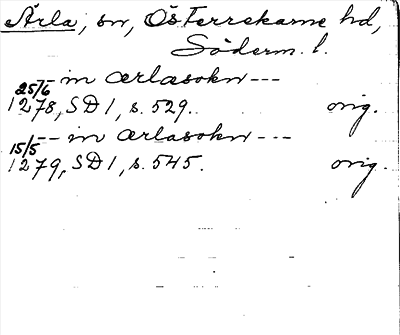 Ärla, sn, Öster-Rekarne hd,
Söderm. l.
25/5 -- in ærlasokn ---
1278, SD 1, s. 529. orig.
15/5 -- in ærlasokn ---
1279, SD 1, s. 545. orig.